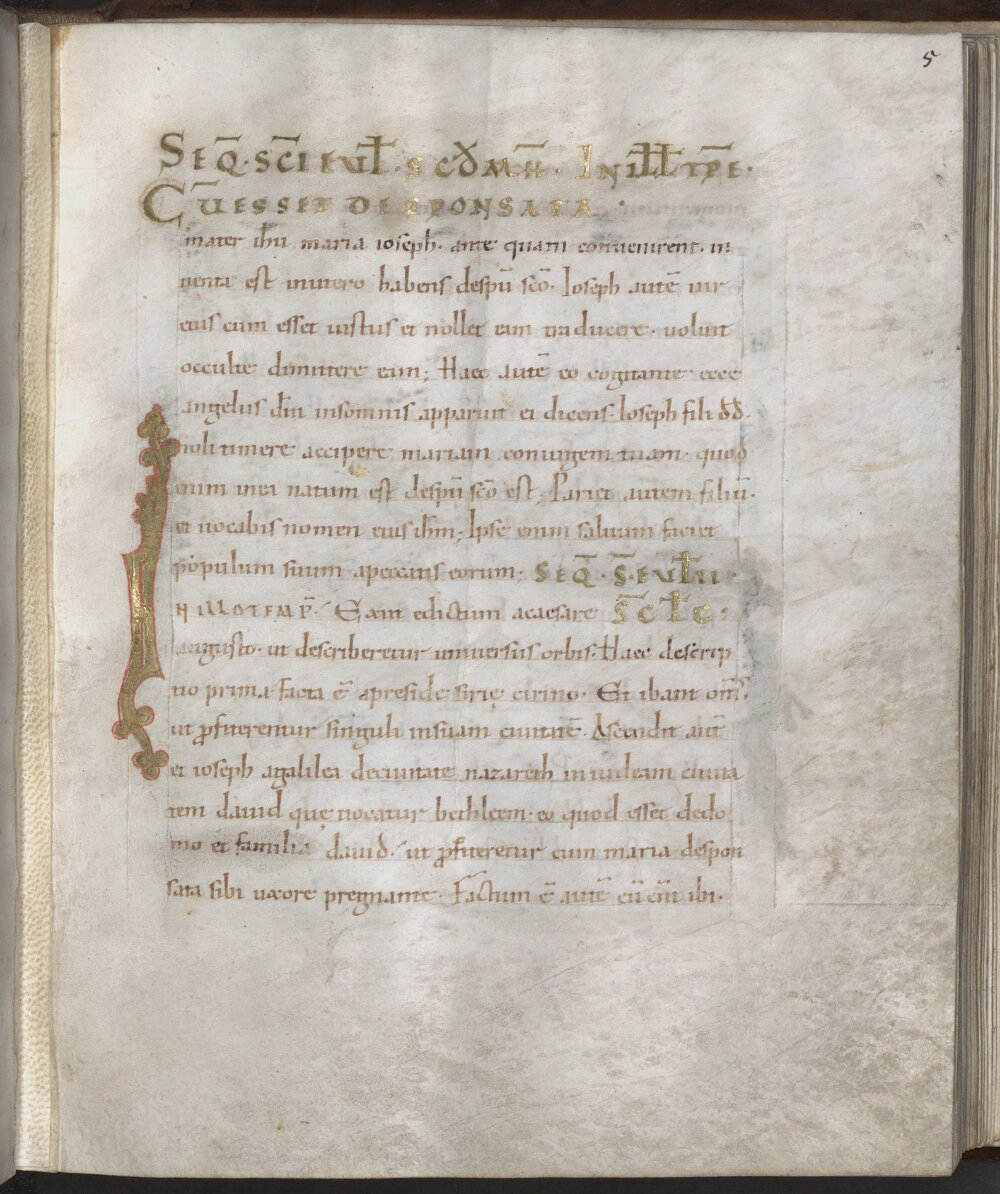 5
SEQ̄. S̄C̄I EVŁ. SCD̄M MT̄H. IN ILŁ TP̄E.
CŪ ESSET DESPONSATA.
mater ihu maria ioseph. ante quam conuenirent. in
uenta est inutero habens despū sc̄o. Ioseph autē uir
eius cum esset iustus et nollet eam traducere. uoluit
occulte dimittere eam; Haec autē eo cogitante ecce
angelus dn̄i insomnis apparuit ei dicens. Ioseph fili dd̄.
noli timere accipere mariam coniugem tuam. quod
enim inea natum est despū sc̄o est; Pariet autem filiū.
et uocabis nomen eius ihm̄; Ipse enim saluum faciet
populum suum apeccatis eorum; SEQ̄. S̄ EVŁII.
N ILLO TEMP̄. Exiit edictum acaesare S̄C̄ ŁC.
augusto. ut describeretur uniuersus orbis. Haec descrip
tio prima facta ē apreside sirię cirino. Et ibant om̄s,
ut ꝓfiterentur singuli insuam ciuitatē. Ascendit aut̄
et ioseph agalilea deciuitate nazareth iniudeam ciuita
tem dauid que uocatur bethleem. eo quod esset dedo
mo et familia dauid. ut ꝓfiteretur cum maria despon
sata sibi uxore pregnante. Factum ē autē cū eēnt ibi.